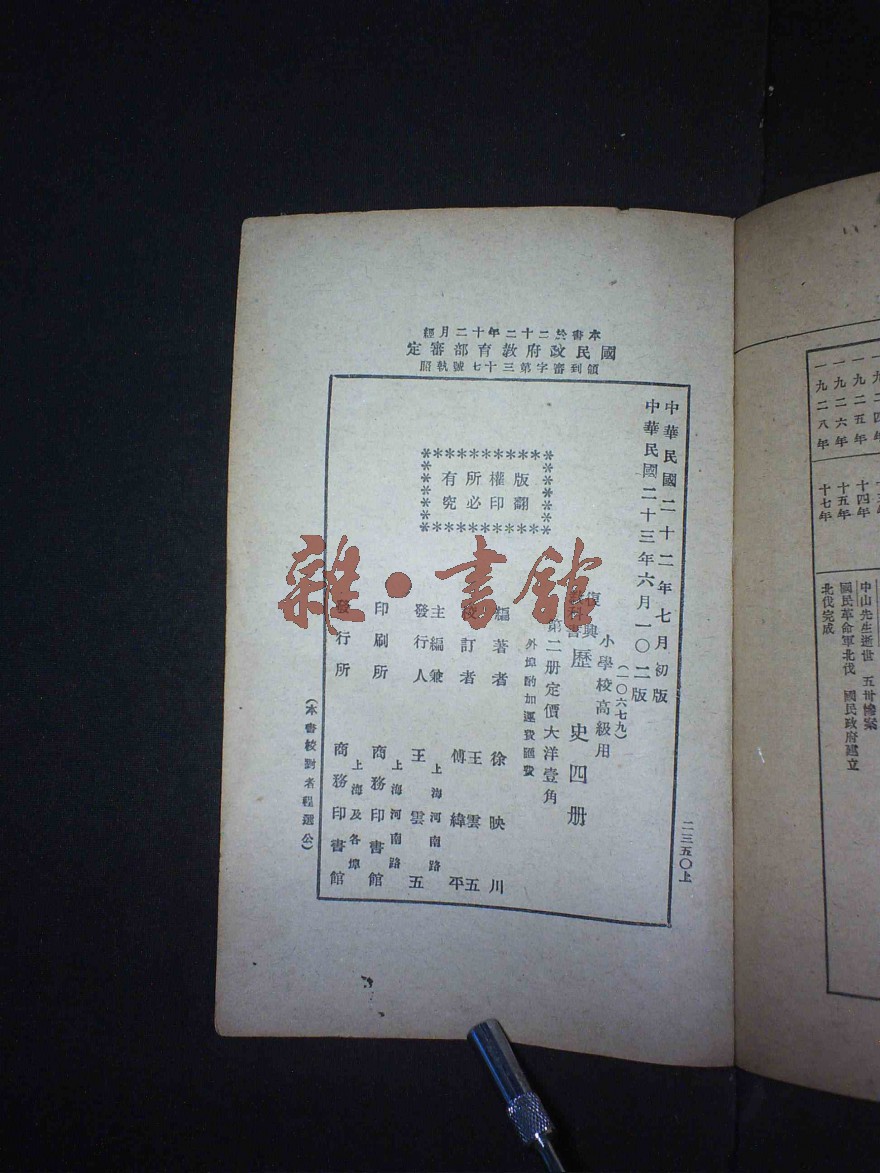 本書於二十二年十二月經
國民政府教育部審定
領到審字第三十七號執照
中華民國二十二年七月初版
中華民國二十三年六月一〇二版
(一〇六七九)
小學校高級用
復興
教科書
歷史四册
第二册定價大洋壹角
外埠酌加運費匯費
版權所有
翻印必究
編著者 徐映川
校訂者 王雲五
傅緯平
主編兼
發行人 王雲五
上海河南路
印刷所 商務印書館
上海河南路
發行所 商務印書館
上海及各埠
(本書校對者程選公)
二三五〇上
雜·書館
一九二五年 十四年 中山先生逝世 五卅慘案
一九二六年 十五年 國民革命軍北伐 國民政府建立
一九二八年 十七年 北伐完成